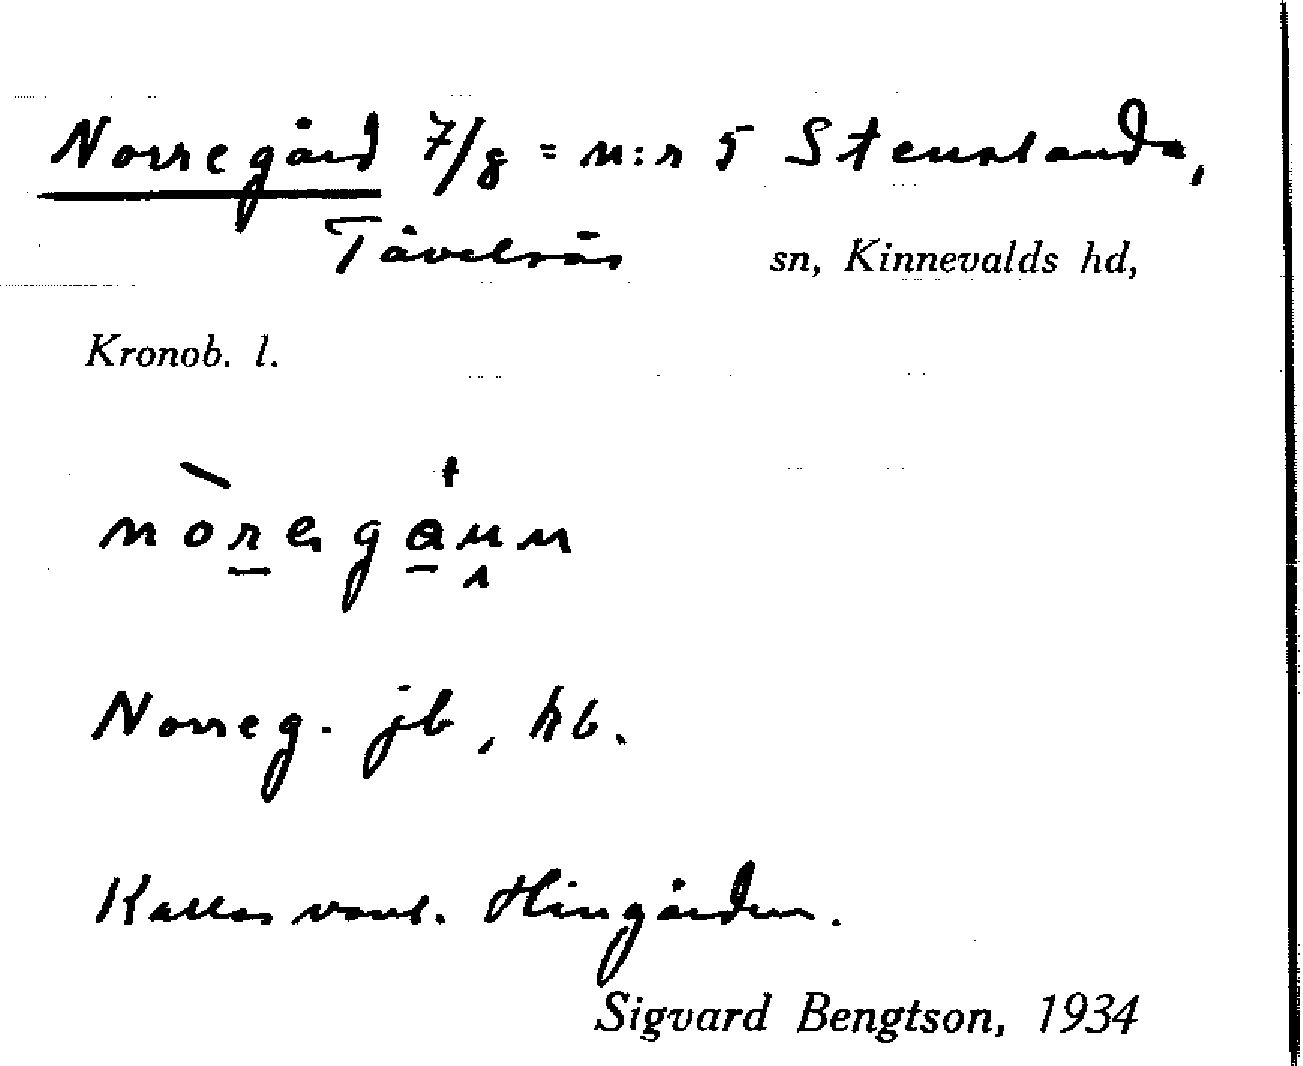 Norregård 7/8 = n:r 5 Stenslanda,
Tävelsås sn, Kinnevalds hd,
Kronob. l.
Norreg. jb, hb.
Kallas vanl. Hingården.
Sigvard Bengtson, 1934